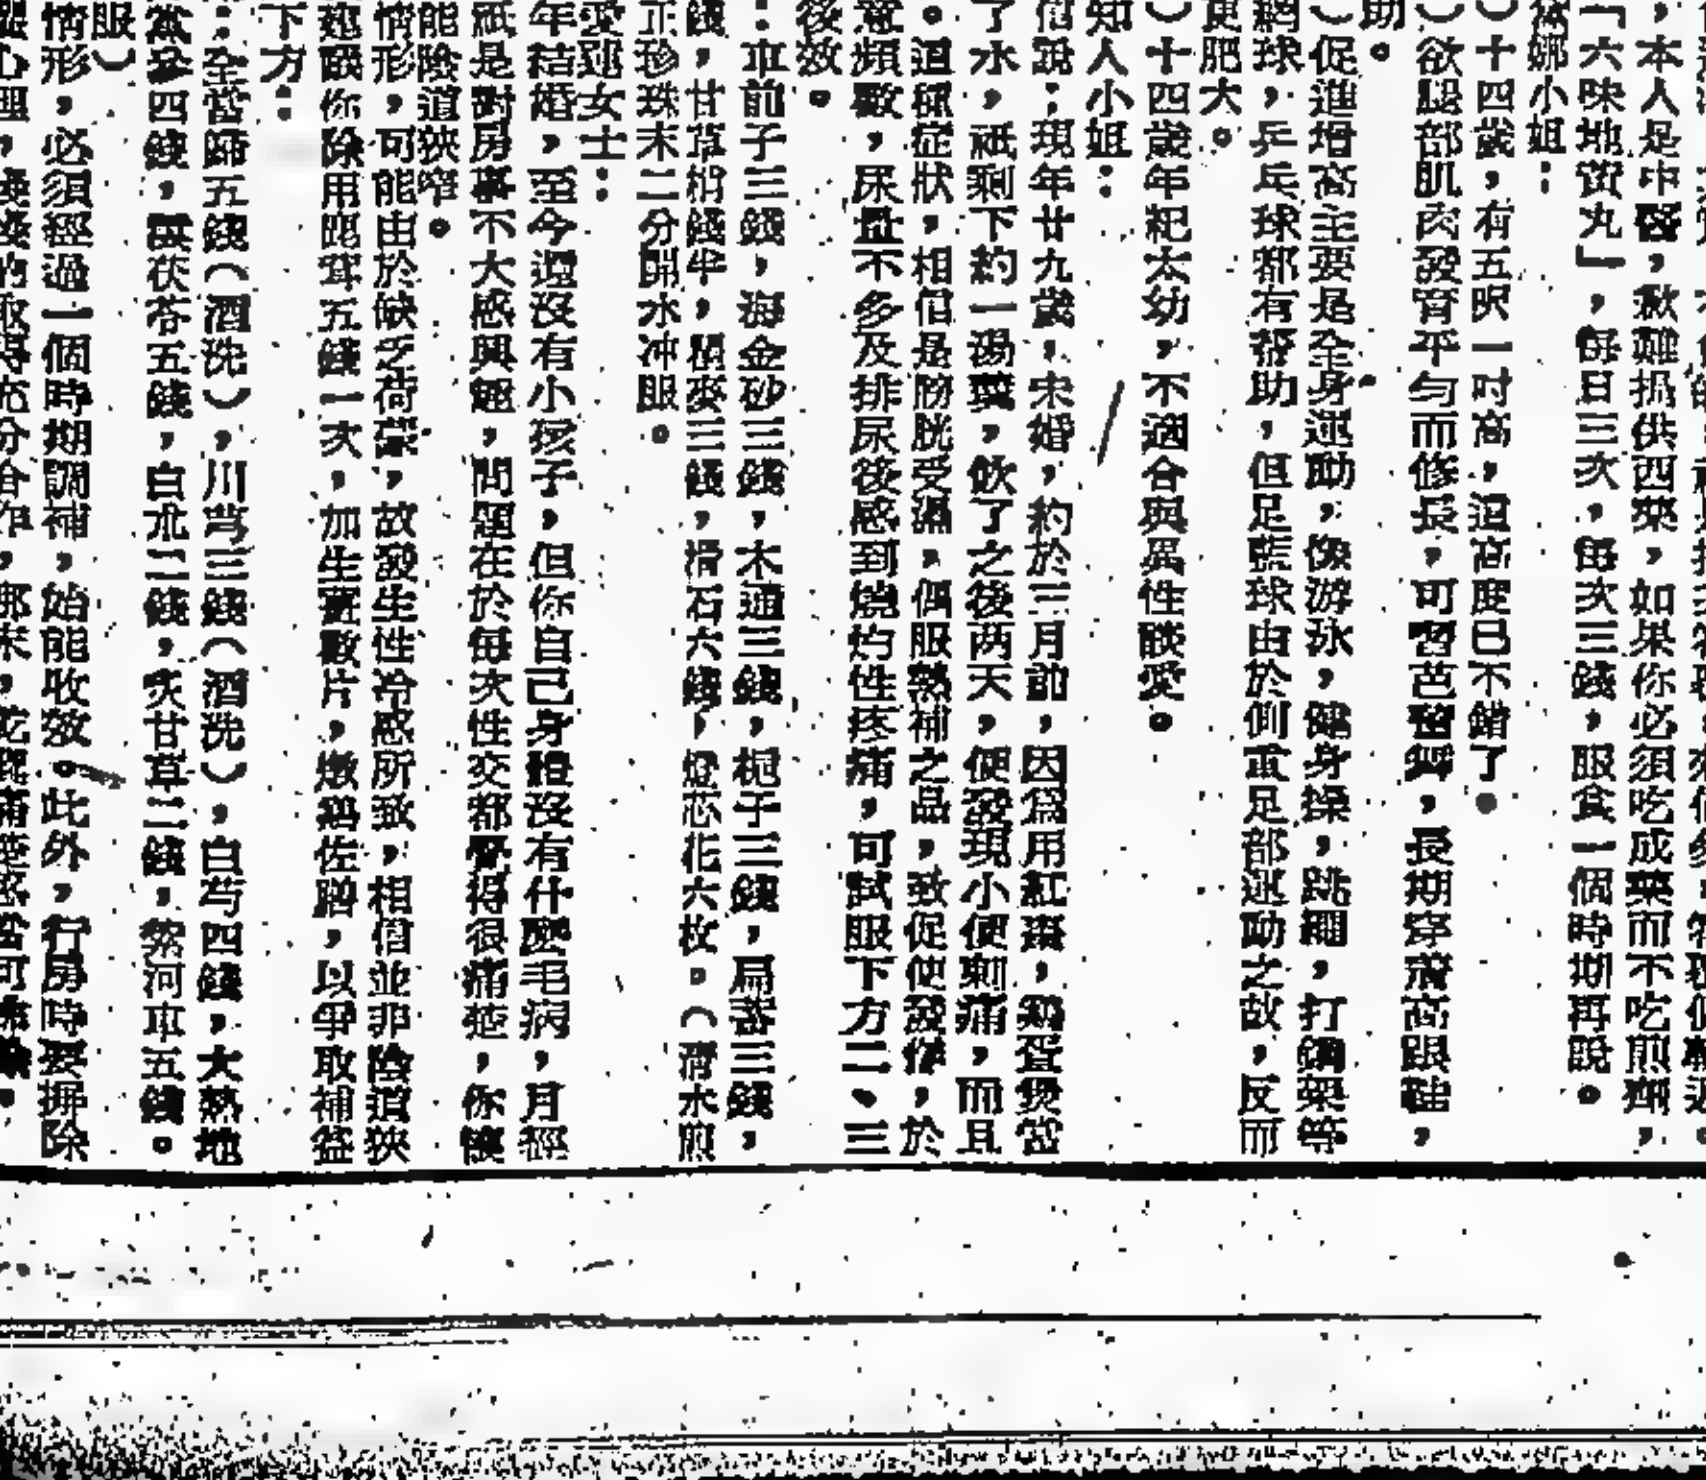 ，本人是中醫，歉難揾供西藥，如果你必須吃成藥而不吃煎劑，
「六味地黃丸」，每日三次，每次三錢，服食一個時期再說。
娜小姐：
）十四歲，有五呎一吋高，這高度已不錯了。
）欲腿部肌肉發育平勻而修長，可習芭蕾舞，長期穿着高跟鞋，
助。
）促進增高主要是全身運動，像游泳，健身操，跳繩，打鋼架等
網球，乒乓球都有帮助，但足籃球由於側重足部運動之故，反而
更肥大。
）十四歲年紀太幼，不適合與異性談愛。
知人小姐：
信說；現年廿九歲，未婚，約於三月前，因爲用紅棗，鷄蛋煲當
了水，祇剩下約一湯藥，飲了之後两天，便發現小便刺痛，而且
。這種症狀，相信是膀胱受濕，偶服熱補之品，致促使發作，於
意頻數，尿量不多及排尿後感到燒灼性疼痛，可試服下方二、三
後效。
：車前子三錢，海金砂三錢，木通三錢，梔子三錢，扁蓄三錢，
錢，甘草梢錢半，瞿麥三錢，滑石六錢，燈芯花六枚。（清水煎
正珍珠末二分開水冲服。
愛蓮女士：
年結婚，至今還沒有小孩子，但你自己身體沒有什麼毛病，月經
祇是對房事不大感興趣，問題在於每次性交都覺得很痛楚，你懷
能陰道狹窄。
情形，可能由於缺乏荷蒙，故發生性冷感所致，相信並非陰道狹
你除用鹿茸五錢一次，加生薑數片，燉鷄佐膳，以爭取補益
下方：
：全當歸五錢（酒洗），川芎三錢（酒洗），白芍四錢，大熟地
四錢，雲茯苓五錢，白朮二錢，炙甘草二錢，紫河車五錢。
服）
情形，必須經過一個時期調補，始能收效。此外，行房時要摒除